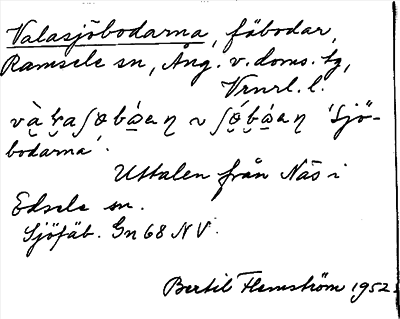 Valasjöbodarna, fäbodar,
Ramsele sn, Ång. v. doms. tg,
Vrnrl. l.
'Sjö-
bodarna'.
Uttalen från Näs i
Edsele sn.
Sjöfäb. Gn 68 NV.
Bertil Flemström 1952.